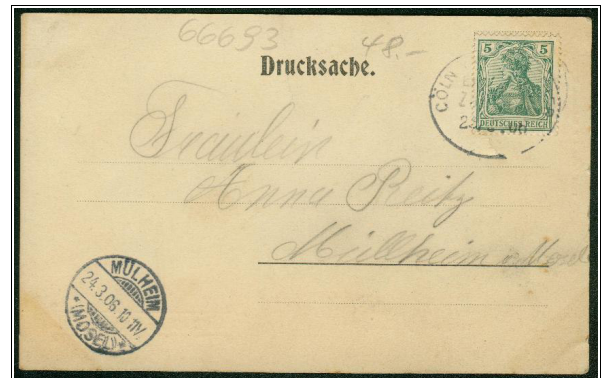 66693 48.-
Drucksache.
5 5
DEUTSCHES REICH
CÖLN
Fräulein
Anna Reitz
Müllheim
MÜLHEIM
24.3.06.10-11V
*(MOSEL)*